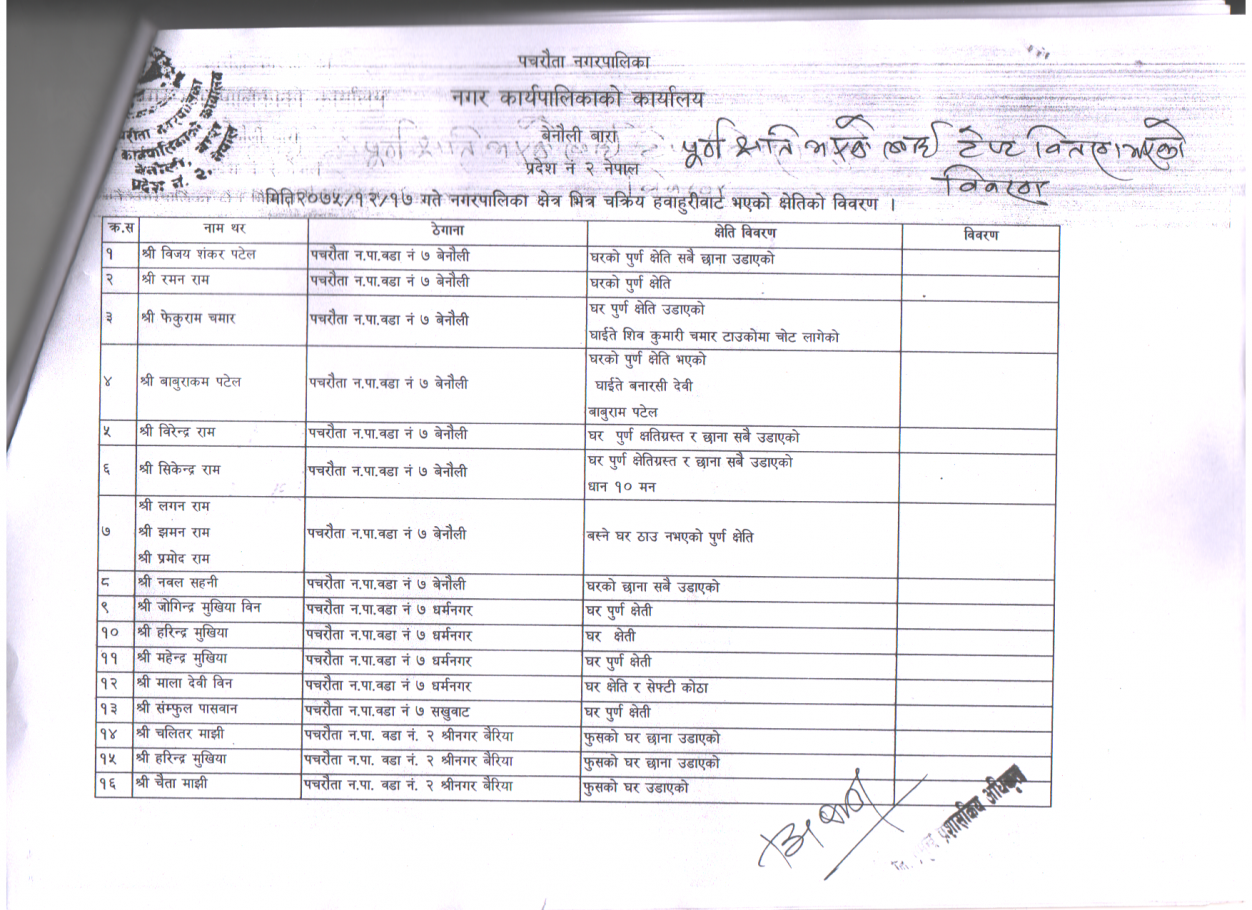 पचरौता नगरपालिका
नगर कार्यपालिकाको कार्यालय
बेनौली बारा
प्रदेश नं २ नेपाल
पचरौता नगरपालिका
कार्यपालिकाको कार्यालय
बेनौली, बारा
नेपाल
प्रदेश नं. २
पूर्ण क्षति भएको लाई टेण्ट वितरण भएको
विवरण
मिति२०७५/१२/१७ गते नगरपालिका क्षेत्र भित्र चक्रिय हवाहुरीवाट भएको क्षेतिको विवरण ।
क्र.स नाम थर ठेगाना क्षेति विवरण विवरण
१ श्री विजय शंकर पटेल पचरौता न.पा.वडा नं ७ बेनौली घरको पुर्ण क्षेति सबै छाना उडाएको
२ श्री रमन राम पचरौता न.पा.वडा नं ७ बेनौली घरको पुर्ण क्षेति
३ श्री फेकुराम चमार पचरौता न.पा.वडा नं ७ बेनौली घर पुर्ण क्षेति उडाएको
घाईते शिव कुमारी चमार टाउकोमा चोट लागेको
४ श्री बाबुराकम पटेल पचरौता न.पा.वडा नं ७ बेनौली घरको पुर्ण क्षेति भएको
घाईते बनारसी देवी
बाबुराम पटेल
५ श्री विरेन्द्र राम पचरौता न.पा.वडा नं ७ बेनौली घर पुर्ण क्षतिग्रस्त र छाना सबै उडाएको
६ श्री सिकेन्द्र राम पचरौता न.पा.वडा नं ७ बेनौली घर पुर्ण क्षेतिग्रस्त र छाना सबै उडाएको
धान १० मन
७ श्री लगन राम
श्री झमन राम पचरौता न.पा.वडा नं ७ बेनौली बस्ने घर ठाउ नभएको पुर्ण क्षेति
श्री प्रमोद राम
८ श्री नवल सहनी पचरौता न.पा.वडा नं ७ बेनौली घरको छाना सबै उडाएको
९ श्री जोगिन्द्र मुखिया विन पचरौता न.पा.वडा नं ७ धर्मनगर घर पुर्ण क्षेती
१० श्री हरिन्द्र मुखिया पचरौता न.पा.वडा नं ७ धर्मनगर घर क्षेती
११ श्री महेन्द्र मुखिया पचरौता न.पा.वडा नं ७ धर्मनगर घर पुर्ण क्षेती
१२ श्री माला देवी विन पचरौता न.पा.वडा नं ७ धर्मनगर घर क्षेति र सेफ्टी कोठा
१३ श्री संम्फुल पासवान पचरौता न.पा.वडा नं ७ सखुवाट घर पुर्ण क्षेती
१४ श्री चलितर माझी पचरौता न.पा. वडा नं. २ श्रीनगर बैरिया फुसको घर छाना उडाएको
१५ श्री हरिन्द्र मुखिया पचरौता न.पा. वडा नं. २ श्रीनगर बैरिया फुसको घर छाना उडाएको
१६ श्री चैता माझी पचरौता न.पा. वडा नं. २ श्रीनगर बैरिया फुसको घर उडाएको
प्रशासकिय अधिकृत